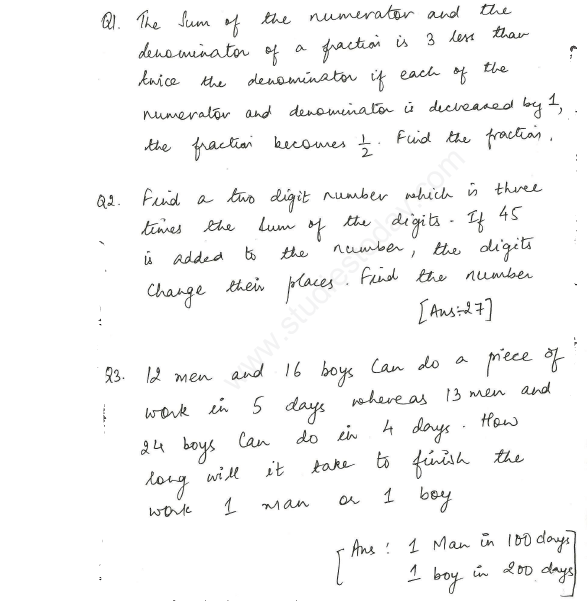 Q1. The Sum of the numerator and the
denominator of a fraction is 3 less than
twice the denominator if each of the
numerator and denominator is decreased by 1,
the fraction becomes 1/2. Find the fraction.
Q2. Find a two digit number which is three
times the sum of the digits. If 45
is added to the number, the digits
change their places. Find the number
[Ans:-27]
Q3. 12 men and 16 boys Can do a piece of
work in 5 days whereas 13 men and
24 boys Can do in 4 days. How
long will it take to finish the
work 1 man or 1 boy
[Ans: 1 Man in 100 days
1 boy in 200 days]
www.studiestoday.com